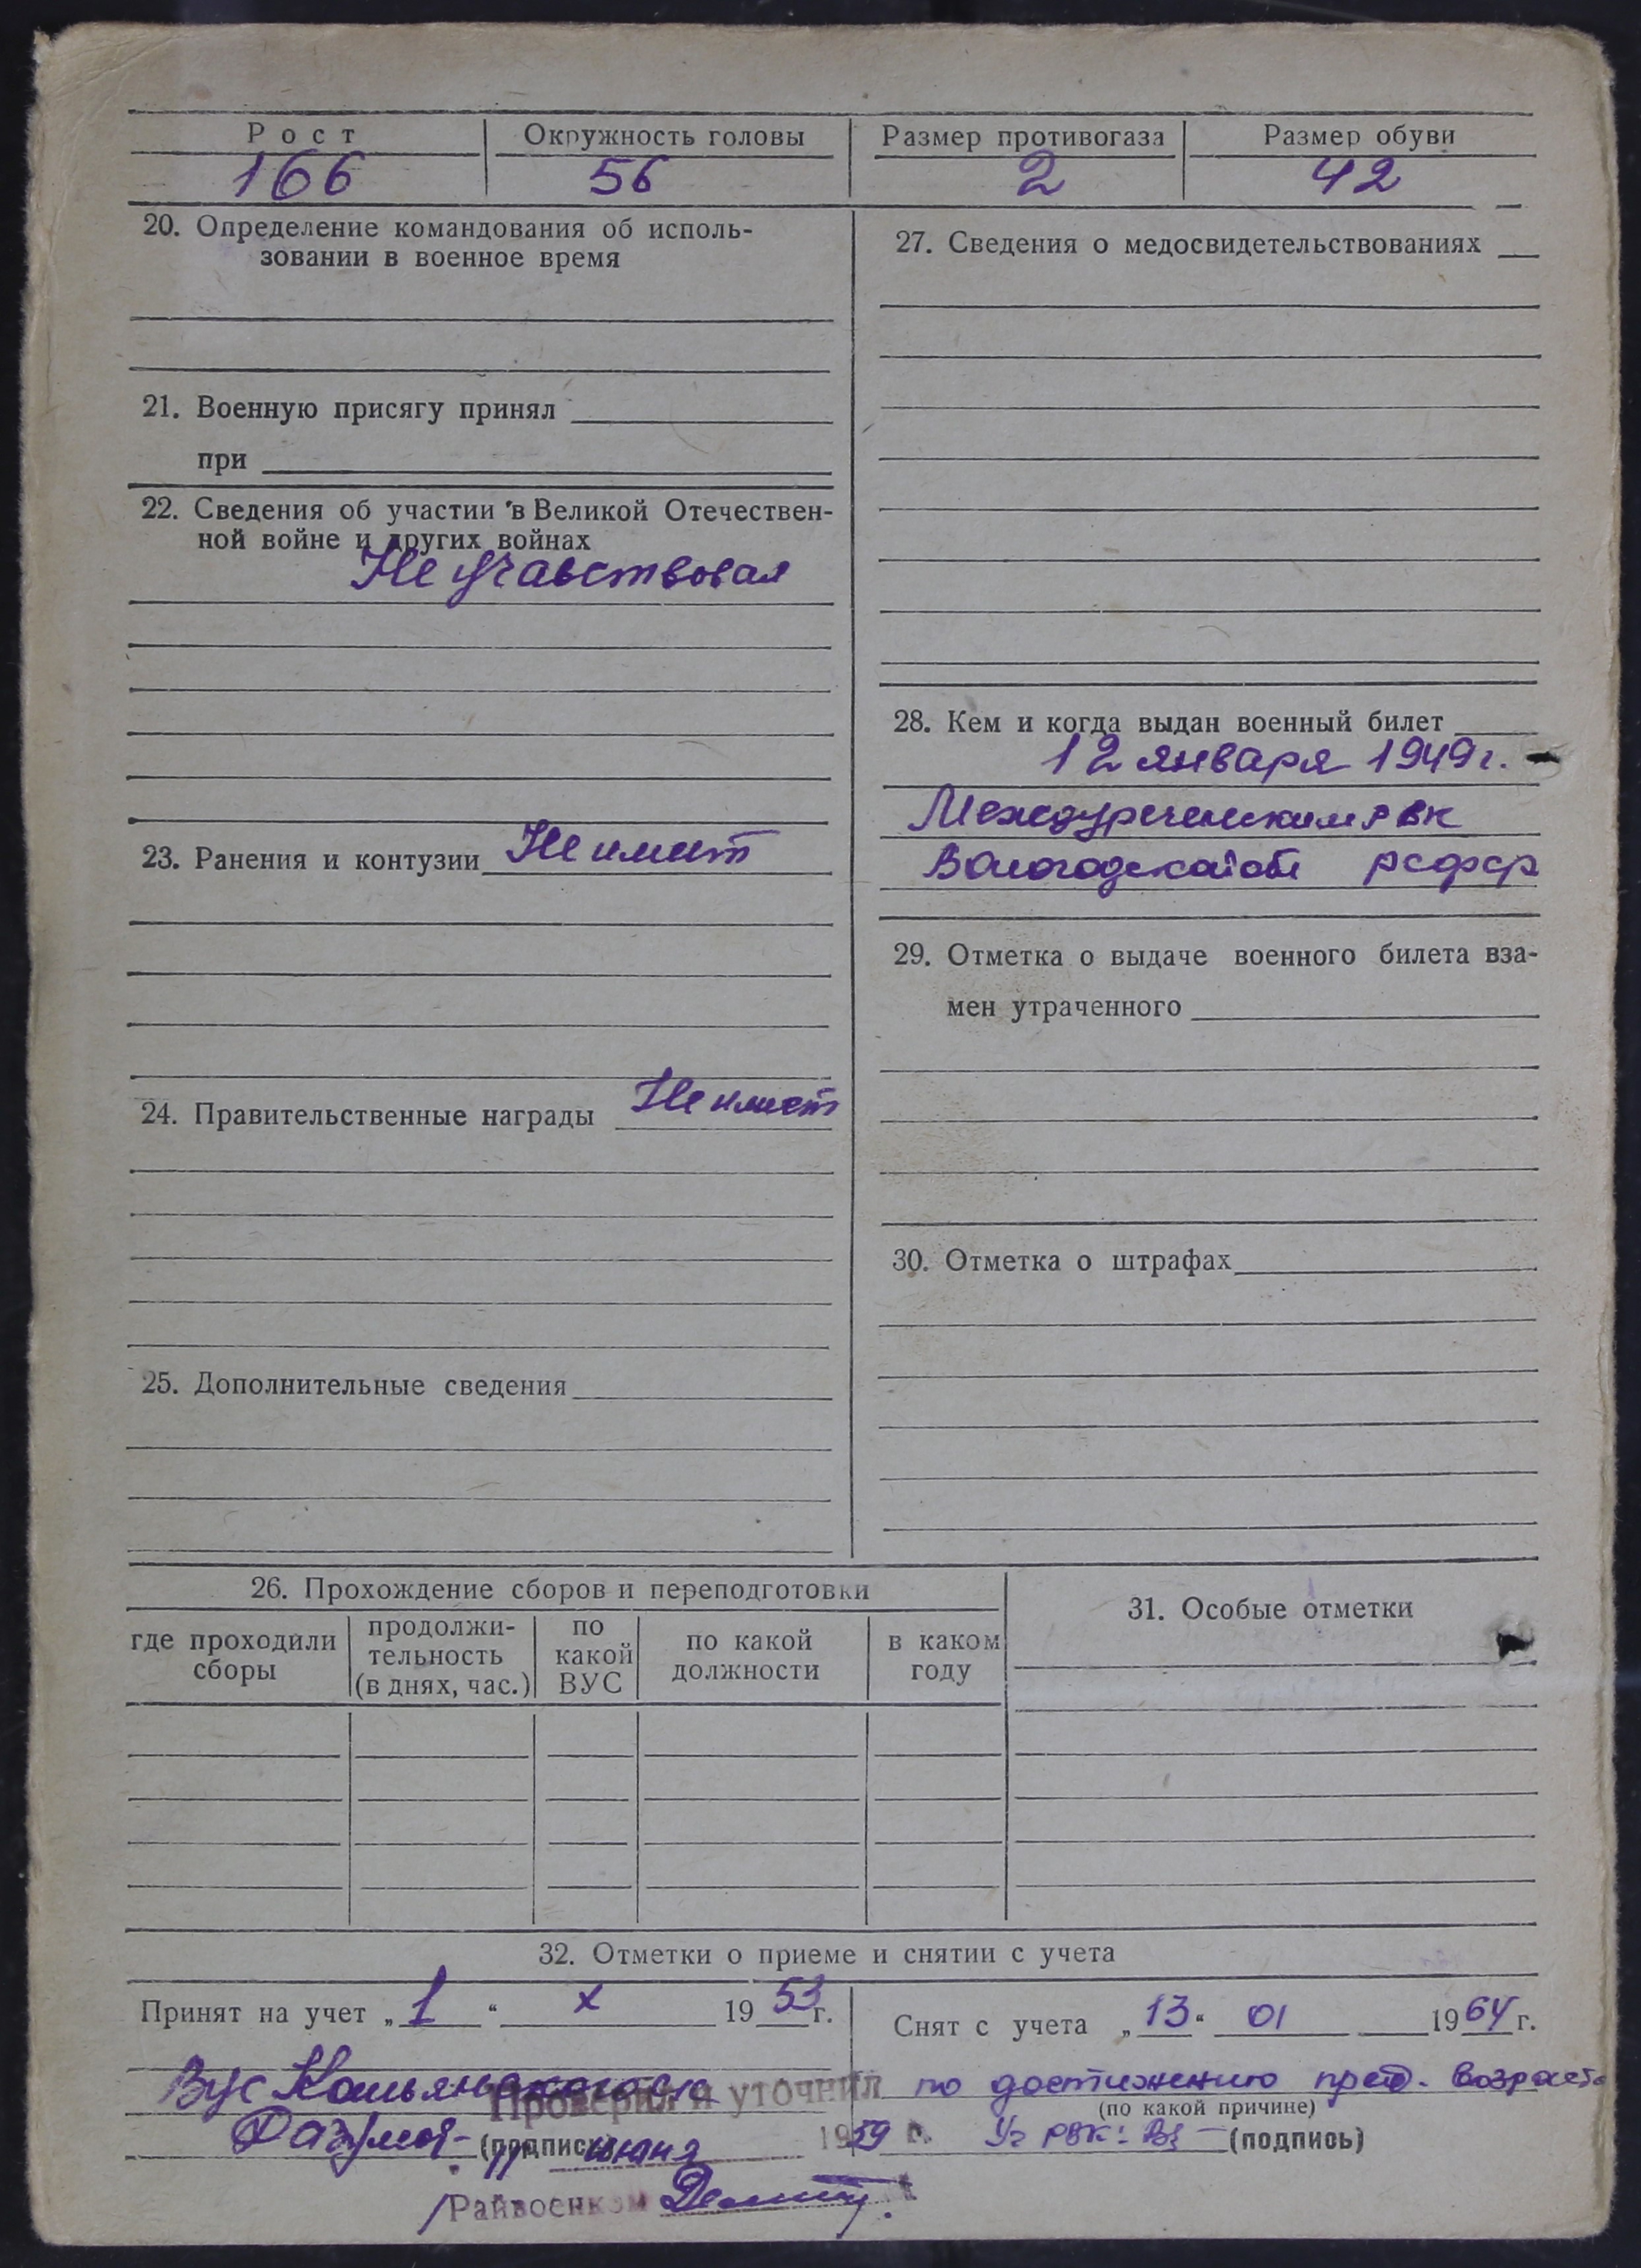 Рост Окружность головы Размер противогаза Размер обуви
166 56 2 42
20. Определение командования об исполь-
зовании в военное время
21. Военную присягу принял
при
22. Сведения об участии в Великой Отечествен-
ной войне и других войнах
Не учавствовал
23. Ранения и контузии Не имеет
24. Правительственные награды Не имеет
25. Дополнительные сведения
27. Сведения о медосвидетельствованиях
28. Кем и когда выдан военный билет
12 января 1949 г.
Междуреченским РВК
Вологодской обл РСФСР
29. Отметка о выдаче военного билета вза-
мен утраченного
30. Отметка о штрафах
26. Прохождение сборов и переподготовки
где проходили сборы
продолжи-
тельность
(в днях, час.)
по
какой
ВУС
по какой
должности
в каком
году
31. Особые отметки
32. Отметки о приеме и снятии с учета
Принят на учет „1“ X 1953 г.
Вус
Проверил и уточнил
(подпись)
11 июня 1959 г.
Райвоенком
Снят с учета „13“ 01 1964 г.
по достижению пред. возраста
(по какой причине)
РВК: (подпись)